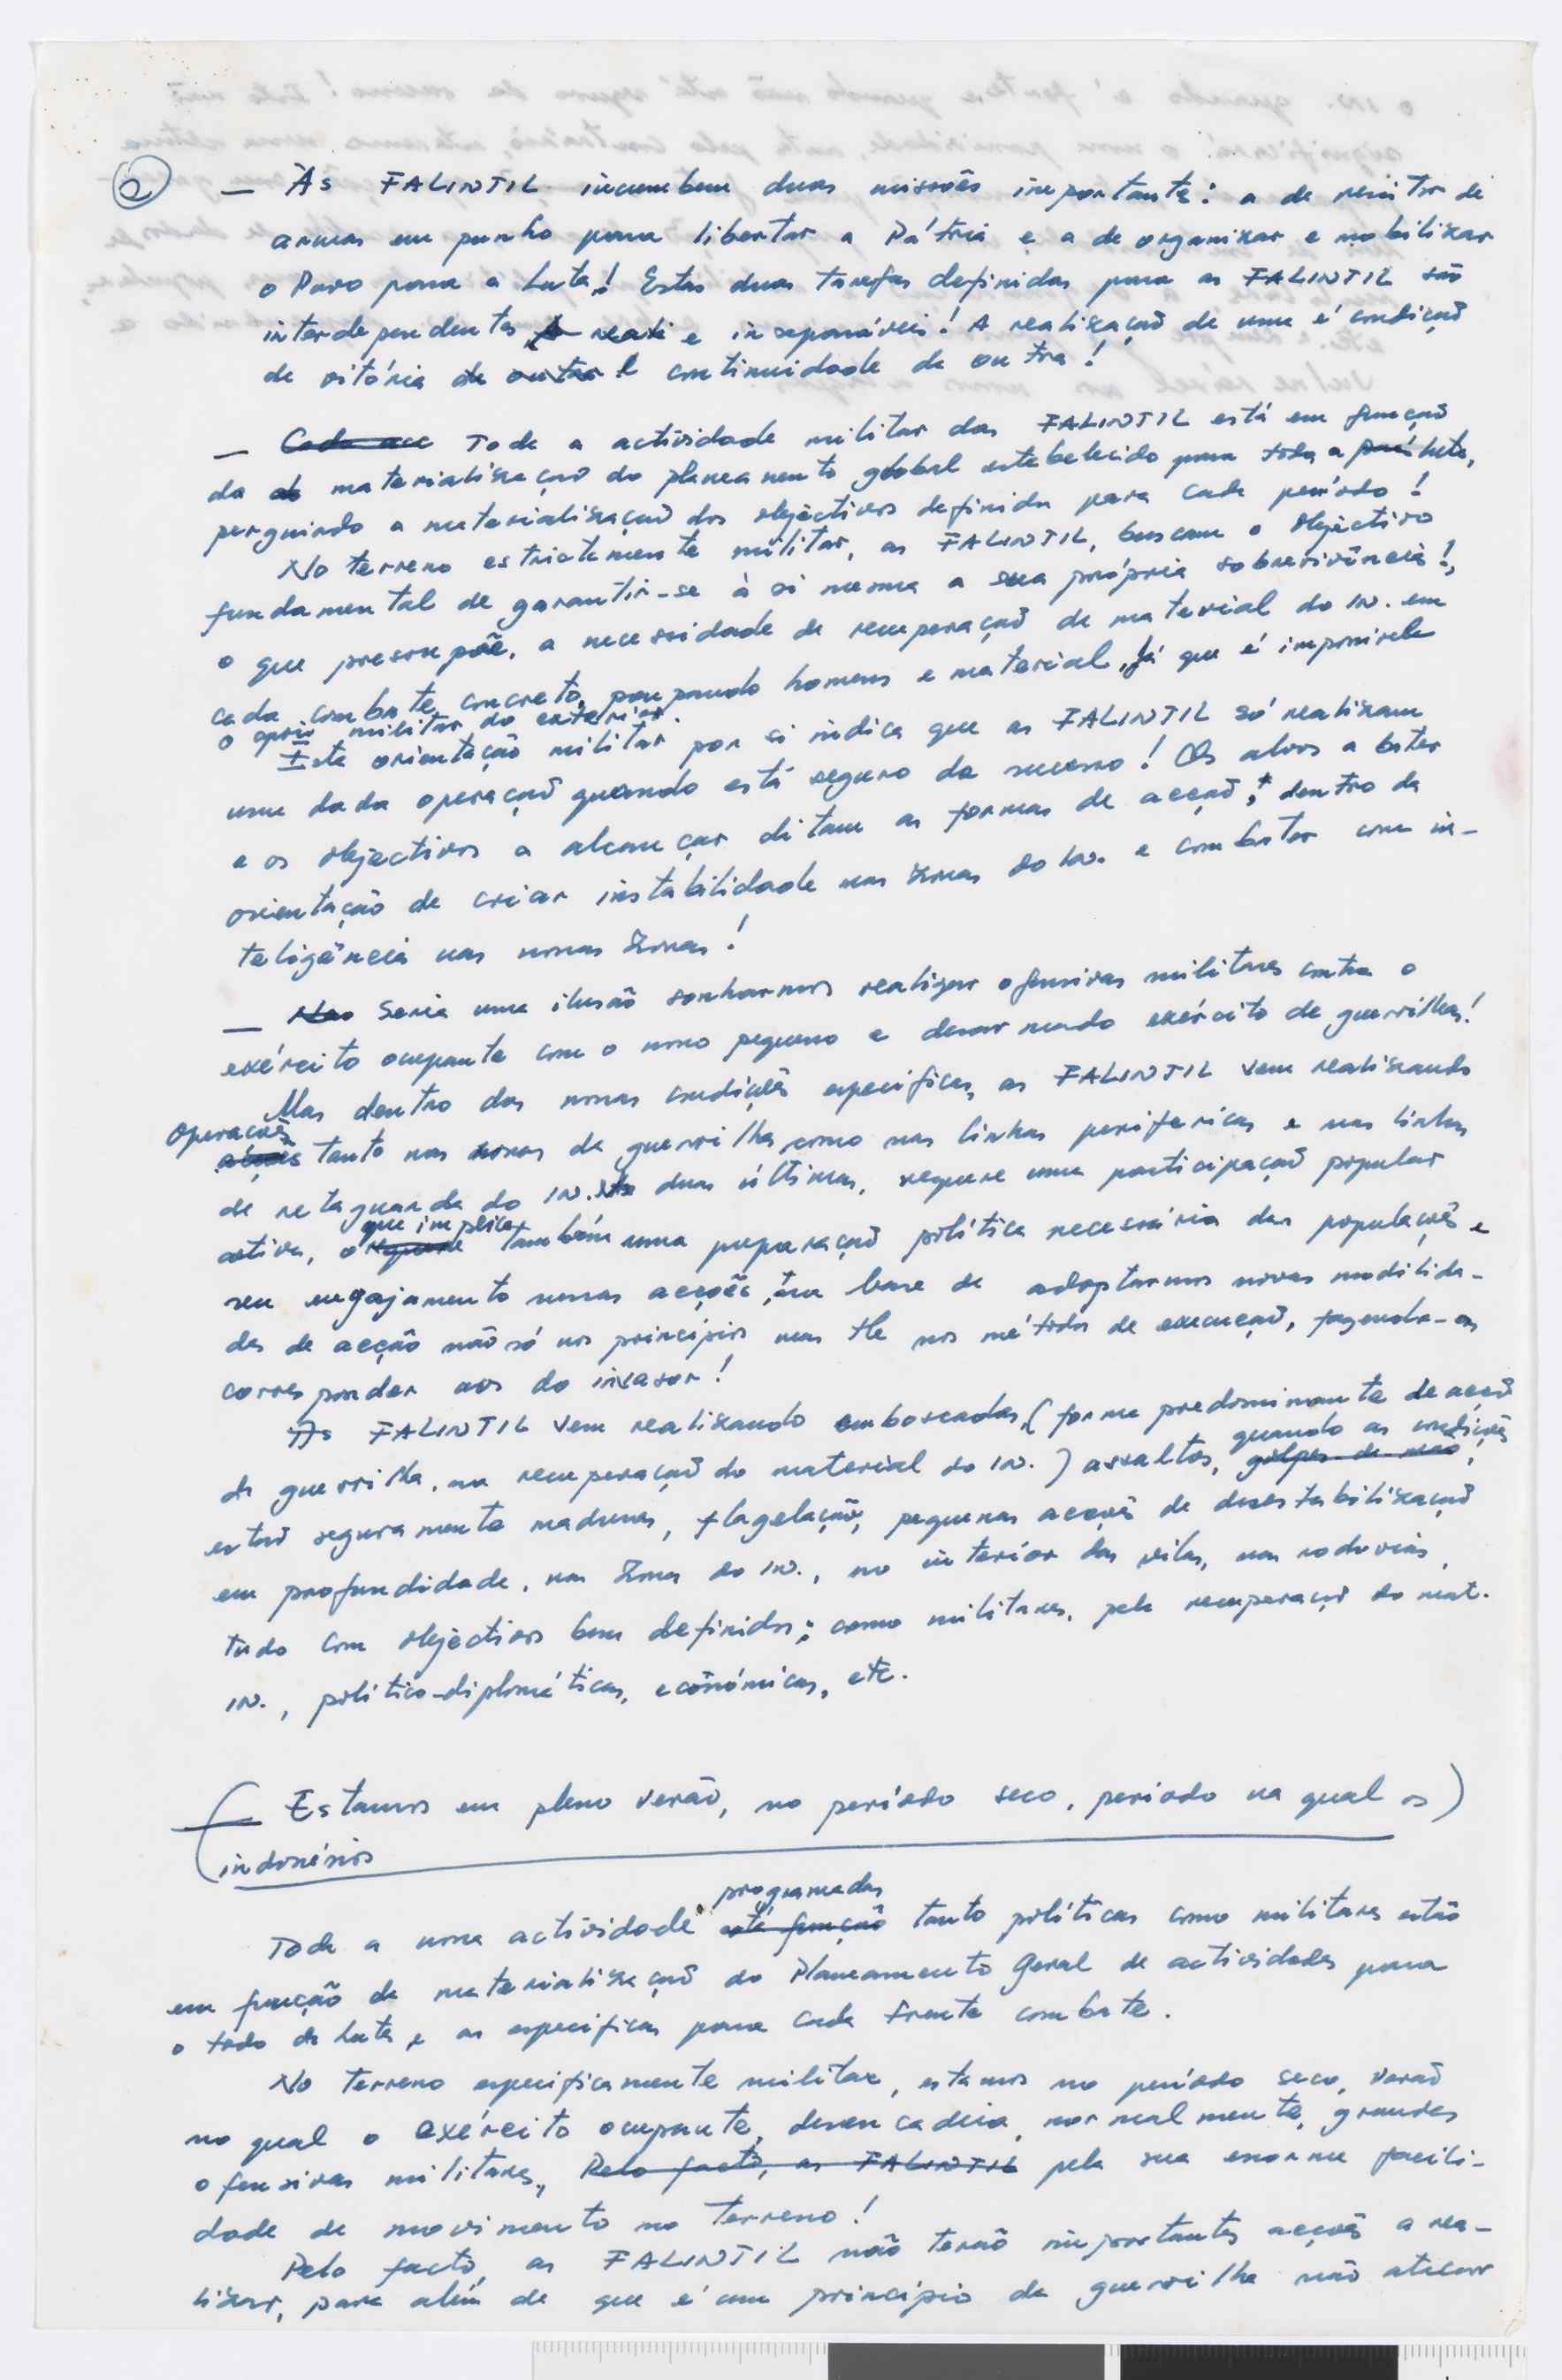 2 — Às FALINTIL incumbem duas missões importante: a de resistir de
armas em punho para libertar a Pátria e a de organizar e mobilizar
o Povo para a Luta! Estas duas tarefas definidas para as FALINTIL são
interdependentes e inseparáveis! A realização de uma é condição
de vitória de outra e continuidade de outra!
— Cada acc Toda a actividade militar das FALINTIL está em função
da materialização do planeamento global estabelecido para toda a luta,
perguindo a materialização dos objectivos definidos para cada período!
No terreno estrictamente militar, as FALINTIL, buscam o objectivo
fundamental de garantir-se à si mesma a sua própria sobrevivência!,
o que pressupõe, a necessidade de recuperação de material do IN. em
cada combate concreto, poupando homens e material, já que é impossível
o apoio militar do exterior.
Esta orientação militar por si indica que as FALINTIL só realizam
uma dada operação quando está seguro do sucesso! Os alvos a bater
e os objectivos a alcançar ditam as formas de acção, dentro da
orientação de criar instabilidade nas zonas do IN. e combater com in-
teligência nas nossas Zonas!
— Nao Seria uma ilusão sonharmos realizar ofensivas militares contra o
exército ocupante com o nosso pequeno e desarmado exército de guerrilhas!
Mas dentro das nossas condições específicas, as FALINTIL vem realizando
Operações
acções tanto nas zonas de guerrilha, como nas linhas perifericas e nas linhas
de retaguarda do IN. duas últimas, requere uma participação popular
que implica
activa, o requere também uma preparação política necessária das populações e
seu engajamento nessas acções, na base de adoptarmos novas modalida-
des de acção não só nos princípios mas nos métodos de execução, fazendo-os
corresponder aos do invasor!
As FALINTIL vem realizando emboscadas, (forma predominante de acção
de guerrilha, na recuperação do material do IN.) assaltos, golpes de mão, quando as condições
estão seguramente maduras, flagelação, pequenas acções de desestabilização
em profundidade, nas Zonas do IN., no interior das vilas, nas rodovias,
tudo com objectivos bem definidos; como militares, pela recuperação do mat.
IN., político-diplomáticas, económicas, etc.
(— Estamos em pleno verão, no período seco, período na qual os)
indonésios
programadas
Toda a nossa actividade está função tanto políticas como militares estão
em função da materialização do Planeamento Geral de actividades para
o todo da luta, e as específicas para cada frente combate.
No terreno especificamente militar, estamos no período seco, verão
no qual o exército ocupante, desencadeia, normalmente, grandes
ofensivas militares, Pelo facto, as FALINTIL pela sua enorme facili-
dade de movimento no terreno!
Pelo facto, as FALINTIL não terão importantes acções a rea-
lizar, para além de que é um princípio da guerrilha não atacar